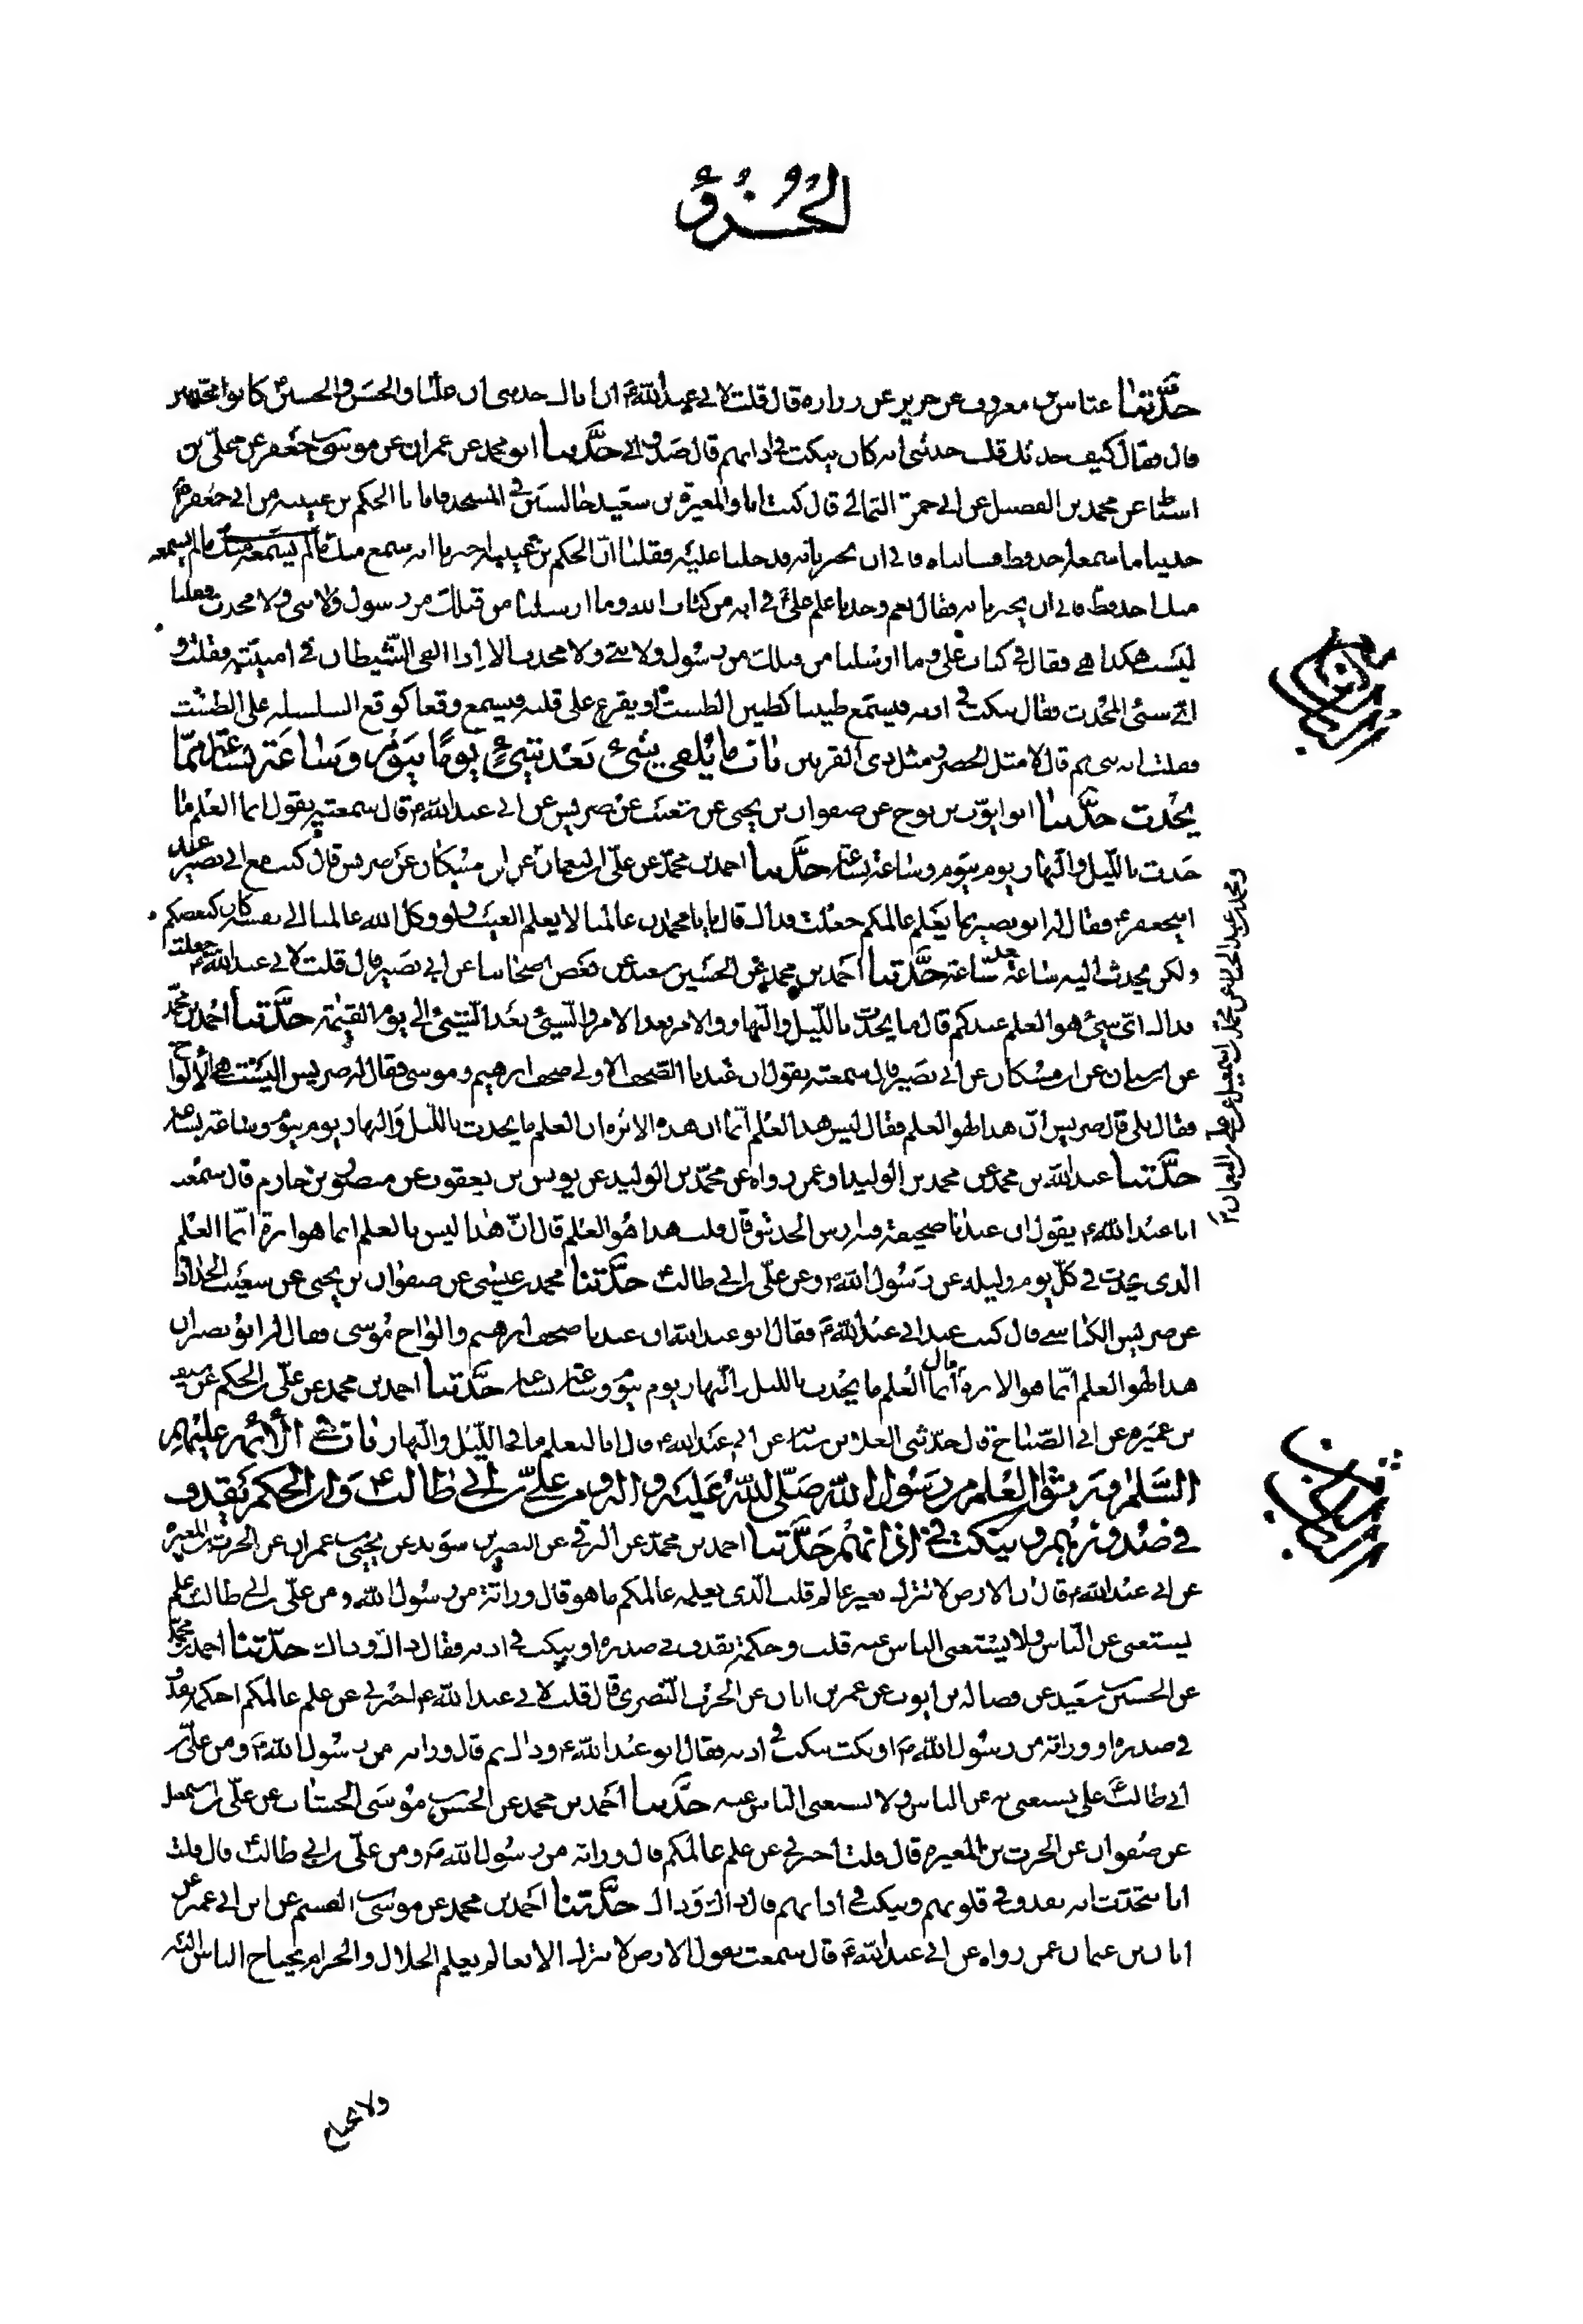 الجُزؤ
حدَّثنا عباس بن معروف عن حريز عن زراره قال قلت لابي عبد الله ع ان اباك حدثنى ان عليا والحسن والحسين كانوا محدثين
قال فقال كيف حدثك قلت حدثنى انه كان ينكت فى اذانهم قال صدق ابى حدَّثنا ابو محمد عن عمران بن موسى بن جعفر عن على بن
اسباط عن محمد بن الفضيل عن ابى حمزة الثمالى قال كنت انا والمغيرة بن سعيد جالسين فى المسجد فاتانا الحكم بن عيينه فقال من ابى جعفر ع
حديثا ما سمعه احد قط فسالناه فابى ان يخبرنا به فدخلنا عليه فقلنا ان الحكم بن عيينه اخبرنا انه سمع منك ما لم يسمعه منك ما لم يسمعه
منك احد قط فابى ان يخبرنا به فقال نعم وجدنا علم على ع فى ايه من كتاب الله وما ارسلنا من قبلك من رسول ولا نبى ولا محدث فقلنا
ليست هكذا هى فقال فى كتاب على وما ارسلنا من قبلك من رسول ولا نبى ولا محدث الا اذا القى الشيطان فى امنيته فقلت و
اى شىء المحدث فقال ينكت فى اذنه فيسمع طنينا كطنين الطست او يقرع على قلبه فيسمع وقعا كوقع السلسله على الطست
فقلت انه نبى ثم قال لا مثل الخضر ومثل ذى القرنين باب ما يُلقى شىء بعد شىء يومًا بيوم وساعة بساعة مما
يحدث حدَّثنا ابو ايوب بن نوح عن صفوان بن يحيى عن شعيب عن ضريس عن ابى عبد الله ع قال سمعته يقول انما العلم ما
حدث بالليل والنهار يوم بيوم وساعة بساعة حدَّثنا احمد بن محمد عن على بن النعمان عن ابن مسكان عن ضريس قال كنت مع ابى بصير عند
ابيجعفر ع فقال له ابو بصير بما يعلم عالمكم جعلت فداك قال يا با محمد ان عالمنا لا يعلم الغيب ولو وكل الله عالمنا الى نفسه كان كبعضكم
ولكن يحدث اليه ساعة بعد ساعة حدَّثنا احمد بن محمد عن الحسين بن سعيد عن بعض اصحابنا عن ابى بصير قال قلت لابى عبد الله ع جعلت
فداك اى شىء هو العلم عندكم قال ما يحدث بالليل والنهار والامر بعد الامر والشىء بعد الشىء الى يوم القيمة حدَّثنا احمد بن محمد
عن ابن سنان عن ابن مسكان عن ابى بصير قال سمعته يقول ان عندنا الصحف الاولى صحف ابرهيم وموسى فقال له ضريس اليست هى الالواح
فقال بلى قال ضريس ان هذا لهو العلم فقال ليس هذا العلم انما هذه الاثره ان العلم ما يحدث بالليل والنهار يوم بيوم وساعة بساعة
حدَّثنا عبد الله بن محمد عن محمد بن الوليد او عمن رواه عن محمد بن الوليد عن يونس بن يعقوب عن منصور بن حازم قال سمعت
ابا عبد الله ع يقول ان عندنا صحيفة فيها ارش الخدش قال قلت هذا هو العلم قال ان هذا ليس بالعلم انما هو اثرة انما العلم
الذى يحدث فى كل يوم وليله عن رسول الله ص وعن على بن ابى طالب ع حدَّثنا محمد بن عيسى عن صفوان بن يحيى عن شعيب الحداد
عن ضريس الكناسى قال كنت عند ابى عبد الله ع فقال ابو عبد الله ان عندنا صحف ابرهيم والواح موسى فقال له ابو بصير ان
هذا لهو العلم انما هو الاثرة قال انما العلم ما يحدث بالليل والنهار يوم بيوم وساعة بساعة حدَّثنا احمد بن محمد عن على بن الحكم عن سيف
بن عميرة عن ابى الصباح قال حدثنى العلا بن سيابه عن ابى عبد الله ع قال انا لنعلم ما فى الليل والنهار باب فى الائمة عليهم
السلام ورثوا العلم من رسول الله صلى الله عليه واله ومن على بن ابى طالب ع وان الحكم يقذف
فى صدورهم وينكت فى اذانهم حدَّثنا احمد بن محمد عن البرقى عن النضر بن سويد عن يحيى بن عمران عن الحرث بن المغيره
عن ابى عبد الله ع قال ان الارض لا تترك بغير عالم قلت الذى يعلمه عالمكم ما هو قال وراثة من رسول الله ومن على بن ابى طالب علم
يستغنى عن الناس ولا يستغنى الناس عنه قلت وحكمة يقذف فى صدره او ينكت فى اذنه فقال ذاك وذاك حدَّثنا احمد بن محمد
عن الحسين بن سعيد عن فضاله بن ايوب عن عمر بن ابان عن الحرث النصرى قال قلت لابى عبد الله ع اخبرنى عن علم عالمكم احكمة تقذف
فى صدره او وراثة من رسول الله ص او نكت ينكت فى اذنه فقال ابو عبد الله ع وذاك ثم قال وراثه من رسول الله ص ومن على بن
ابى طالب ع علم يستغنى به عن الناس ولا يستغنى الناس عنه حدَّثنا احمد بن محمد عن الحسن بن موسى الخشاب عن على بن اسمعيل
عن صفوان عن الحرث بن المغيره قال قلت اخبرنى عن علم عالمكم قال وراثه من رسول الله ص ومن على بن ابى طالب ع قال قلت
انا نتحدث انه يقذف فى قلوبهم وينكت فى اذانهم قال ذاك وذاك حدَّثنا احمد بن محمد عن موسى بن القسم عن ابن ابى عمير عن
ابان بن عثمان عمن رواه عن ابى عبد الله ع قال سمعت يقول الارض لا تترك الا بعالم يعلم الحلال والحرام يحتاج الناس اليه
ولا يحتاج